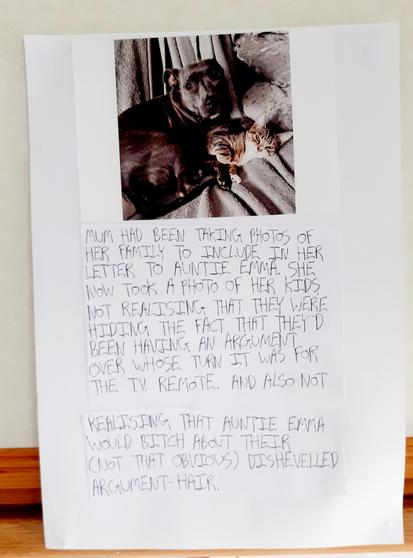 MUM HAD BEEN TAKING PHOTOS OF
HER FAMILY TO INCLUDE IN HER
LETTER TO AUNTIE EMMA. SHE
NOW TOOK A PHOTO OF HER KIDS
NOT REALISING THAT THEY WERE
HIDING THE FACT THAT THEY'D
BEEN HAVING AN ARGUMENT
OVER WHOSE TURN IT WAS FOR
THE TV REMOTE. AND ALSO NOT
REALISING THAT AUNTIE EMMA
WOULD BITCH ABOUT THEIR
(NOT THAT OBVIOUS) DISHEVELLED
ARGUMENT-HAIR.